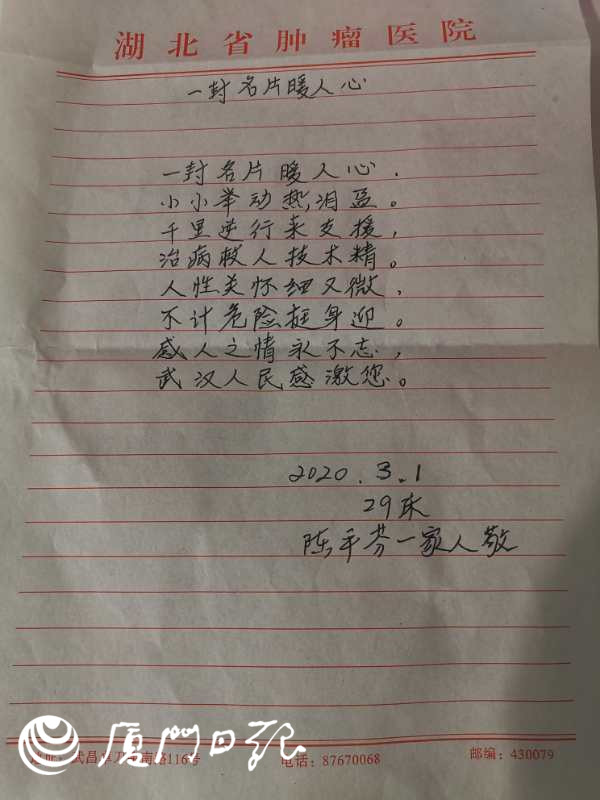 湖北省肿瘤医院
一封名片暖人心
一封名片暖人心.
小小举动热泪盈。
千里逆行来支援,
治病救人技术精。
人性关怀细又微,
不计危险挺身迎。
感人之情永不忘,
武汉人民感激您。
2020.3.1
29床
陈平芬一家人敬
厦门日报
武昌卓刀泉南路116号 电话:87670068 邮编:430079